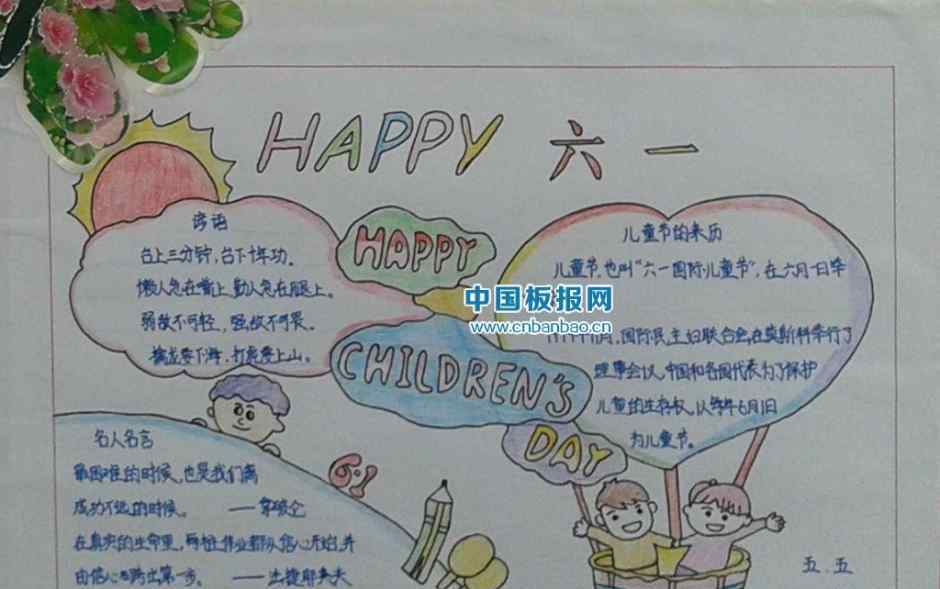 HAPPY 六一
谚语
台上三分钟，台下十年功。
懒人急在嘴上，勤人急在腿上。
弱敌不可轻，强敌不可畏。
擒龙要下海，打虎要上山。
HAPPY
CHILDREN'S
DAY
儿童节的来历
儿童节，也叫“六一国际儿童节”，在六月一日举
11月，国际民主妇联合会在莫斯科举行了
理事会议，中国和各国代表为了保护
儿童的生存权，以每年6月1日
为儿童节。
中国板报网
www.cnbanbao.cn
名人名言
最困难的时候，也是我们离
成功不远的时候。 ——拿破仑
在真实的生命里，每桩伟业都从信心开始，并
由信心跨出第一步。 ——
6·1
五.五